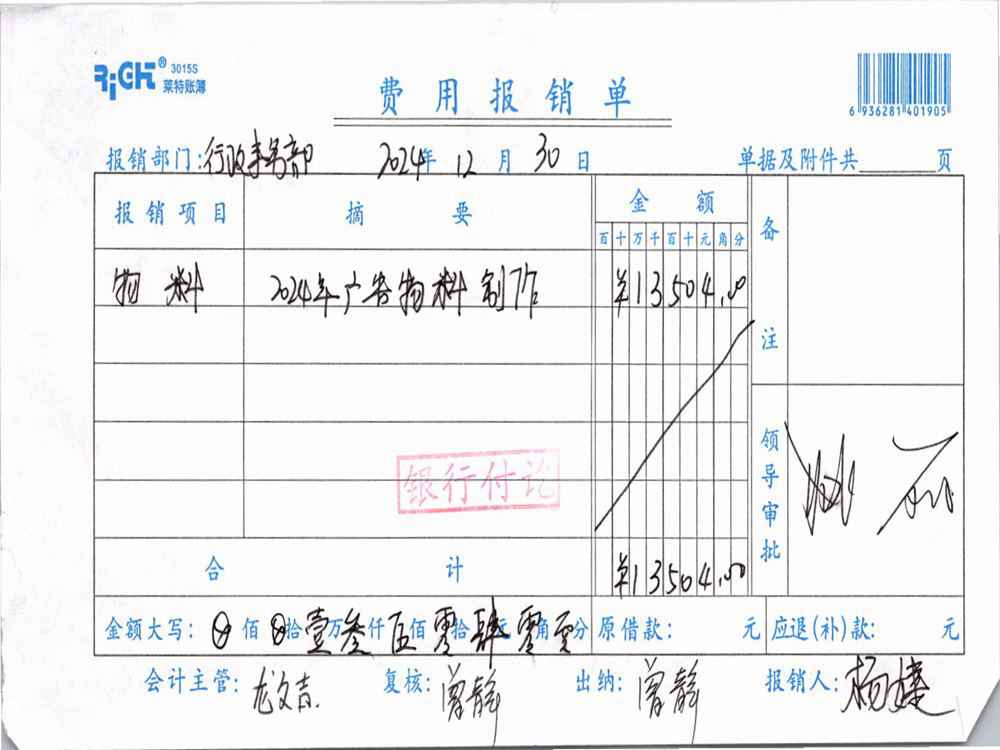 RiGHT® 3015S 莱特账簿
费用报销单
6 936281 401905
报销部门:行政事务部 2024年 12 月 30 日 单据及附件共 页
报销项目 摘要 金额 备注
百 十 万 千 百 十 元 角 分
物料 2024年广告物料制作 ¥13504.00
银行付讫
领导审批
合计 ¥13504.00
金额大写: ⊗ 佰 ⊗ 拾 壹 万 叁 仟 伍 佰 零 拾 肆 元 零 角 零 分 原借款: 元 应退(补)款: 元
会计主管: 龙文吉 复核: 曾静 出纳: 曾静 报销人: 杨婕